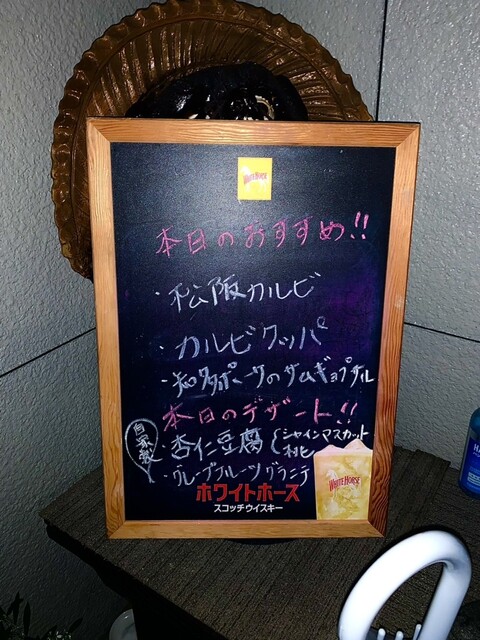 WHITE HORSE
本日のおすすめ!!
・松阪カルビ
・カルビクッパ
・知多ポークのサムギョプサル
本日のデザート!!
自家製
杏仁豆腐 { シャインマスカット
桃
・グレープフルーツグラニテ
ホワイトホース
スコッチウイスキー
WHITE HORSE